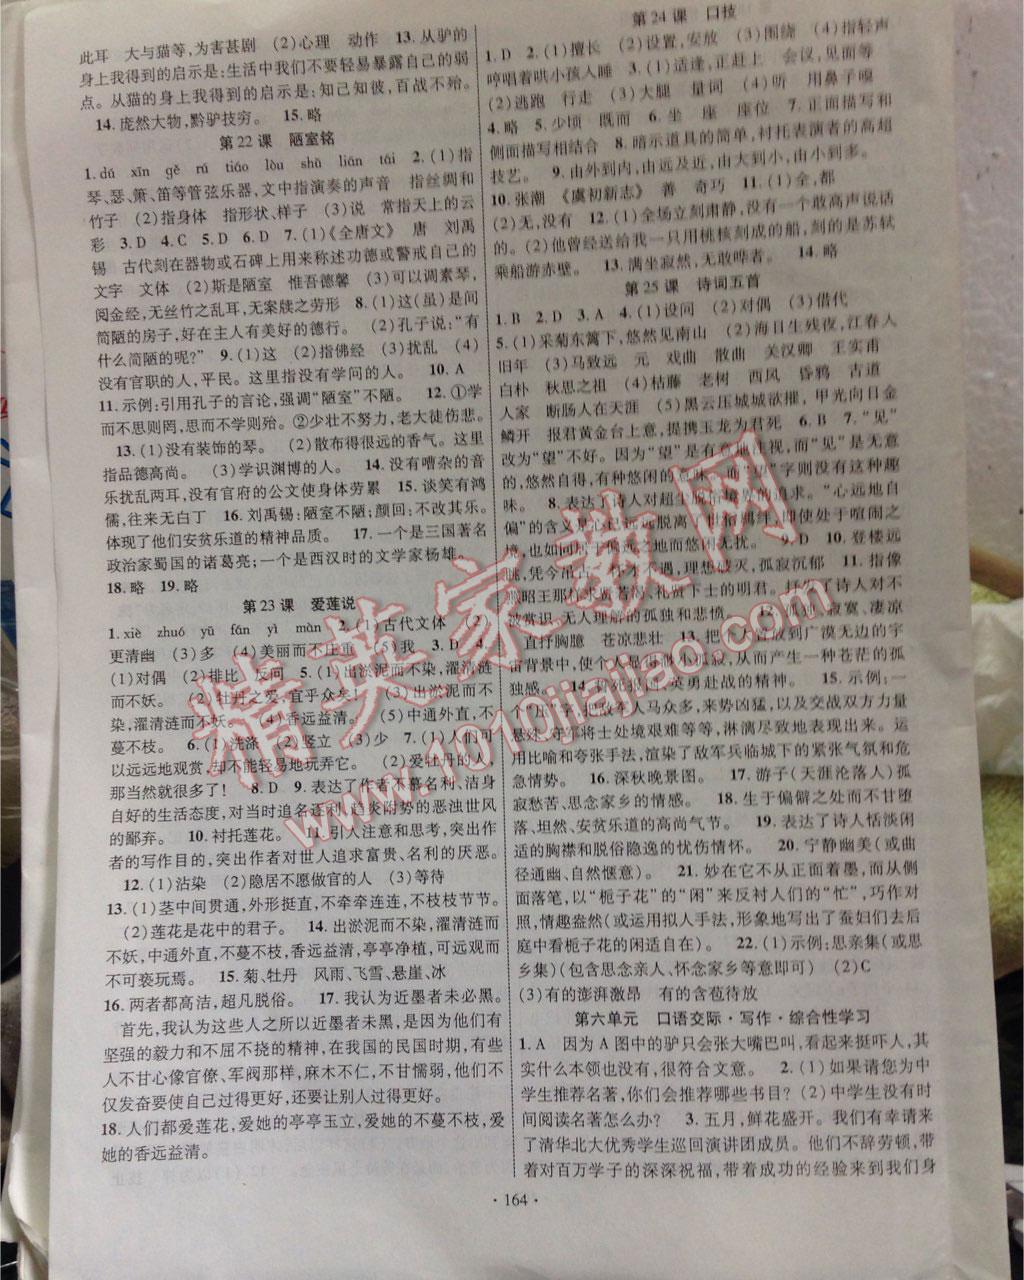 此耳　大与猫等,为害甚剧　(2)心理　动作　13. 从驴的
身上我得到的启示是:生活中我们不要轻易暴露自己的弱
点。从猫的身上我得到的启示是:知己知彼,百战不殆。
14. 庞然大物,黔驴技穷。　15. 略
第 22 课　陋室铭
1. dá　xīn　gě　rú　tiáo　lòu　shū　lián　tái　2. (1)指
琴、瑟、箫、笛等管弦乐器,文中指演奏的声音　指丝绸和
竹子　(2)指身体　指形状、样子　(3)说　常指天上的云
彩　3. D　4. C　5. D　6. D　7. (1)《全唐文》　唐　刘禹
锡　古代刻在器物或石碑上用来称述功德或警戒自己的
文字　文体　(2)斯是陋室　惟吾德馨　(3)可以调素琴,
阅金经,无丝竹之乱耳,无案牍之劳形　8. (1)这(虽)是间
简陋的房子,好在主人有美好的德行。　(2)孔子说:“有
什么简陋的呢?”　9. (1)这　(2)指佛经　(3)扰乱　(4)
没有官职的人,平民。这里指没有学问的人。　10. A
11. 示例:引用孔子的言论,强调“陋室”不陋。　12. ①学
而不思则罔,思而不学则殆。②少壮不努力,老大徒伤悲。
13. (1)没有装饰的琴。　(2)散布得很远的香气。这里
指品德高尚。　(3)学识渊博的人。　14. 没有嘈杂的音
乐扰乱两耳,没有官府的公文使身体劳累　15. 谈笑有鸿
儒,往来无白丁　16. 刘禹锡:陋室不陋;颜回:不改其乐。
体现了他们安贫乐道的精神品质。　17. 一个是三国著名
政治家蜀国的诸葛亮;一个是西汉时的文学家杨雄。
18. 略　19. 略
第 23 课　爱莲说
1. xiè　zhuó　yū　fán　yì　màn　2. (1)古代文体　(2)
更清幽　(3)多　(4)美丽而不庄重　(5)我　3. D　4.
(1)对偶　(2)排比　反问　5. (1)出淤泥而不染,濯清涟
而不妖。　(2)牡丹之爱,宜乎众矣!　(3)出淤泥而不
染,濯清涟而不妖　(4)香远益清。　(5)中通外直,不
蔓不枝。　6. (1)洗涤　(2)竖立　(3)少　7. (1)人们可
以远远地观赏,却不能轻易地玩弄它。　(2)爱牡丹的人,
那当然就很多了!　8. D　9. 表达了作者不慕名利、洁身
自好的生活态度,对当时追名逐利,趋炎附势的恶浊世风
的鄙弃。　10. 衬托莲花。　11. 引人注意和思考,突出作
者的写作目的,突出作者对世人追求富贵、名利的厌恶。
12. (1)沾染　(2)隐居不愿做官的人　(3)等待
13. (1)茎中间贯通,外形挺直,不牵牵连连,不枝枝节节。
(2)莲花是花中的君子。　14. 出淤泥而不染,濯清涟而
不妖,中通外直,不蔓不枝,香远益清,亭亭净植,可远观而
不可亵玩焉。　15. 菊、牡丹　风雨、飞雪、悬崖、冰
16. 两者都高洁,超凡脱俗。　17. 我认为近墨者未必黑。
首先,我认为这些人之所以近墨者未黑,是因为他们有
坚强的毅力和不屈不挠的精神,在我国的民国时期,有些
人不甘心像官僚、军阀那样,麻木不仁,不甘懦弱,他们不
仅发奋要使自己过得更好,还要让别人过得更好。
18. 人们都爱莲花,爱她的亭亭玉立,爱她的不蔓不枝,爱
她的香远益清。
第 24 课　口技
1. D　2. (1)擅长　(2)设置,安放　(3)围绕　(4)指轻声
哼唱着哄小孩入睡　3. (1)适逢,正赶上　会议,见面等
(2)逃跑　行走　(3)大腿　量词　(4)听　用鼻子嗅
4. 略　5. 少顷　既而　6. 坐　座　座位　7. 正面描写和
侧面描写相结合　8. 暗示道具的简单,衬托表演者的高超
技艺。　9. 由外到内,由远及近,由大到小,由小到多。
10. 张潮　《虞初新志》　善　奇巧　11. (1)全,都
(2)无,没有　12. (1)全场立刻肃静,没有一个敢高声说话
的。(2)他曾经送给我一只用桃核刻成的船,刻的是苏轼
乘船游赤壁。　13. 满坐寂然,无敢哗者。　14. 略
第 25 课　诗词五首
1. B　2. D　3. A　4. (1)设问　(2)对偶　(3)借代
5. (1)采菊东篱下,悠然见南山　(2)海日生残夜,江春入
旧年　(3)马致远　元　戏曲　散曲　关汉卿　王实甫
白朴　秋思之祖　(4)枯藤　老树　西风　昏鸦　古道
人家　断肠人在天涯　(5)黑云压城城欲摧,甲光向日金
鳞开　报君黄金台上意,提携玉龙为君死　6. B　7. “见”
改为“望”不好。因为“望”是有意地注视,而“见”是无意
的,悠然自得,有种悠闲的意味。而“望”字则没有这种趣
味。　8. 表达了诗人对超尘脱俗境界的追求。“心远地自
偏”的含义是心已远远脱离了世俗羁绊,即使处于喧闹之
境,也如同居于偏远之地而悠闲无扰。　9. D　10. 登楼远
眺,凭今吊古,怀才不遇,理想破灭,孤寂沉郁　11. 指像
燕昭王那样求贤若渴、礼贤下士的明君。抒发了诗人不
被赏识,无人理解的孤独和悲愤。　12. 孤独、寂寞、凄凉
直抒胸臆　苍凉悲壮　13. 把个人首放到广漠无边的宇
宙背景中,使个人显得渺小孤寂,从而产生一种苍茫的孤
独感。　14. 视死如归,英勇赴战的精神。　15. 示例:一
个“压”字,把敌军人马众多,来势凶猛,以及交战双方力量
悬殊、守军将士处境艰难等等,淋漓尽致地表现出来。运
用比喻和夸张手法,渲染了敌军兵临城下的紧张气氛和危
急情势。　16. 深秋晚景图。　17. 游子(天涯沦落人)孤
寂愁苦、思念家乡的情感。　18. 生于偏僻之处而不甘堕
落、坦然、安贫乐道的高尚气节。　19. 表达了诗人恬淡闲
适的胸襟和脱俗隐逸的忧伤情怀。　20. 宁静幽美(或曲
径通幽、自然惬意)。　21. 妙在它不从正面着墨,而从侧
面落笔,以“栀子花”的“闲”来反衬人们的“忙”,巧作对
照,情趣盎然(或运用拟人手法,形象地写出了蚕妇们去后
庭中看栀子花的闲适自在)。　22. (1)示例:思亲集(或思
乡集)(包含思念亲人、怀念家乡等意即可)　(2)C
(3)有的澎湃激昂　有的含苞待放
第六单元　口语交际·写作·综合性学习
1. A　因为 A 图中的驴只会张大嘴巴叫,看起来挺吓人,其
实什么本领也没有,很符合文意。　2. (1)如果请您为中
学生推荐名著,你们会推荐哪些书目?　(2)中学生没有时
间阅读名著怎么办?　3. 五月,鲜花盛开。我们有幸请来
了清华北大优秀学生巡回演讲团成员。他们不辞劳顿,带
着对百万学子的深深祝福,带着成功的经验来到我们身
· 164 ·
精英家教网
www.1010jiajiao.com